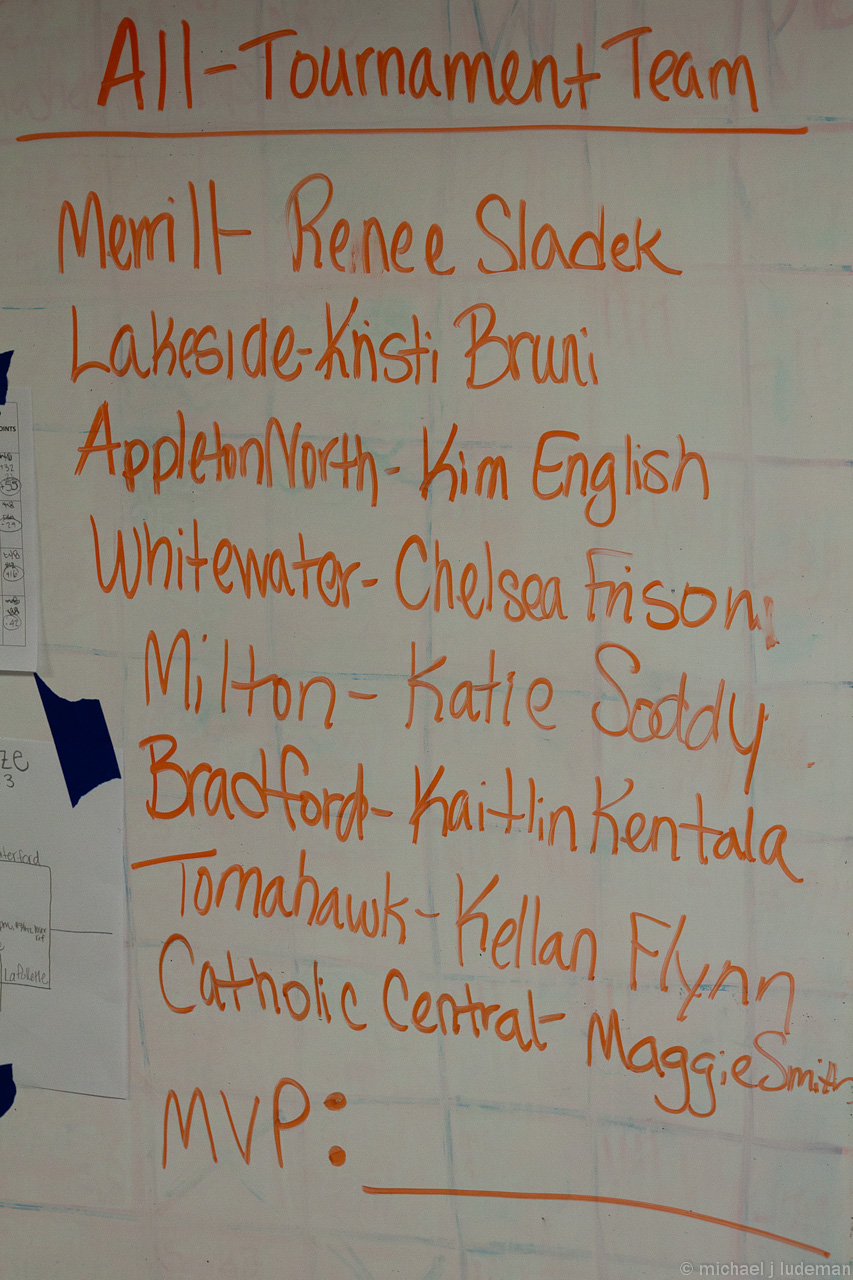 All-Tournament Team
Merrill- Renee Sladek
Lakeside-Kristi Bruni
Appleton North- Kim English
Whitewater- Chelsea Frison
Milton- Katie Soddy
Bradford- Kaitlin Kentala
Tomahawk- Kellan Flynn
Catholic Central- Maggie Smith
MVP:
OINTS
+32
+55
ze
3
terford
Lafollette
© michael j ludeman